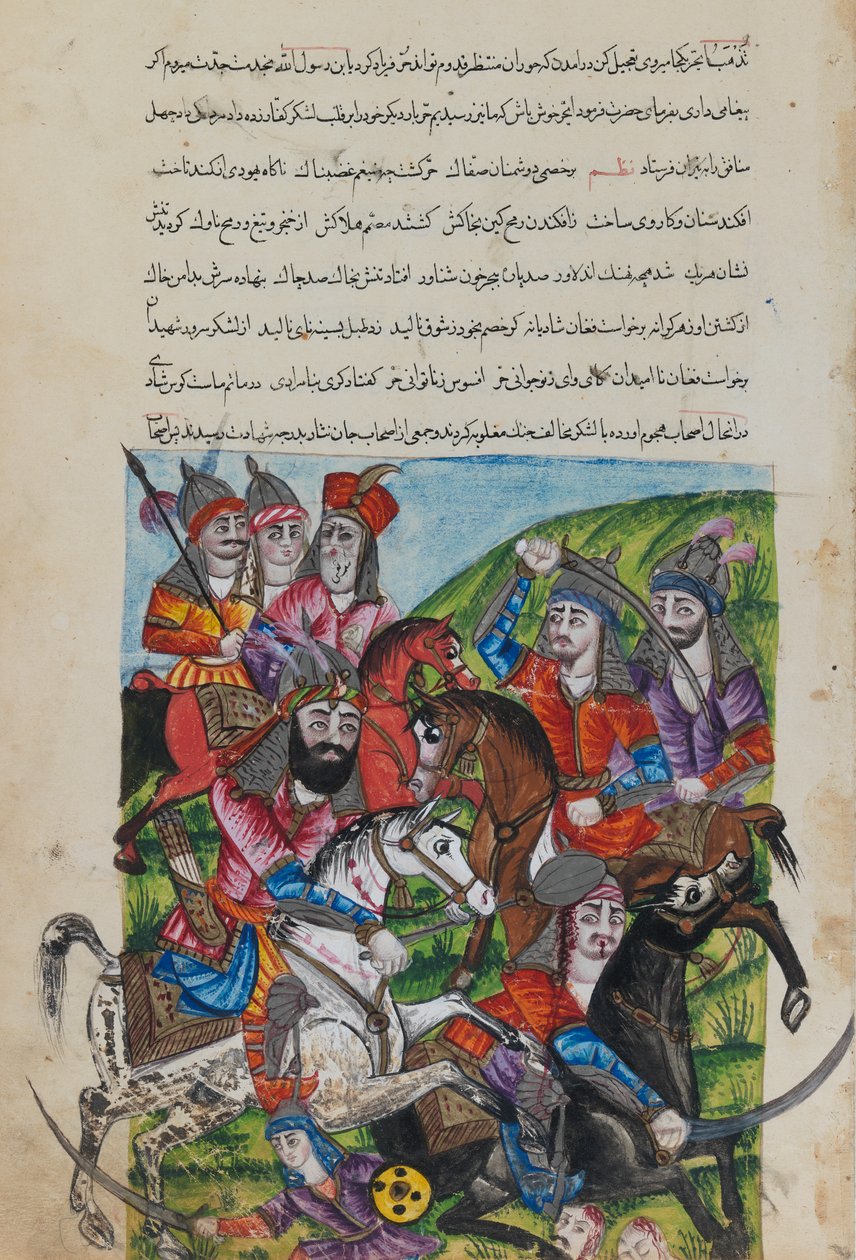 تذهب یا حر بکجا میروی تعجیل کن در آمدن که حوران منتظر قدوم تواند حر فریاد کرد یا بن رسول الله بخدمت جدت میروم اکر
پیغامی داری بفرمای حضرت فرمود ایحر خوش باش که ما نیز رسیدیم حر بار دیکر خود را بر قلب لشکر کفار زده داد مردی داد چهل
منافق را به نیران فرستاد نظم بر خصمی دوشمنان صفاك حر کشت چه ضیغم غضبناك ناکاه یهودی انکند تاخت
افکند سنان و کار وی ساخت ز افکندن رمح کین بخاکش کشتند مصمم هلاکش از خنجر و تیغ و رمح ناوك کردید تنش
نشان هریك شد همچه نهنك اندلاور صد پاره ببحر خون شناور افتاد تنش بخاك صد چاك بنهاده سرش بدامن خاك
از کشتن او ز هر کرانه برخواست فغان شادیانه کو خصم بخود ز شوق نالید زد طبل بسینه نای نالید از لشکر سرور شهیدان
برخواست فغان نا امیدان کای وای ز نوجوانی حر افسوس ز ناتوانی حر در ماتم ماست کوس شادی
در انحال اصحاب هجوم اورده با لشکر مخالف جنك مغلوبه کردند و جمعی از اصحاب جان نثار بدرجه شهادت رسیدند پس اصحاب